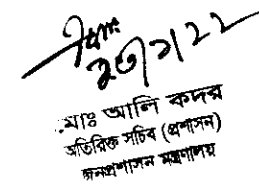 ২৩/১/২২
মোঃ আলি কদর
অতিরিক্ত সচিব (প্রশাসন)
জনপ্রশাসন মন্ত্রণালয়